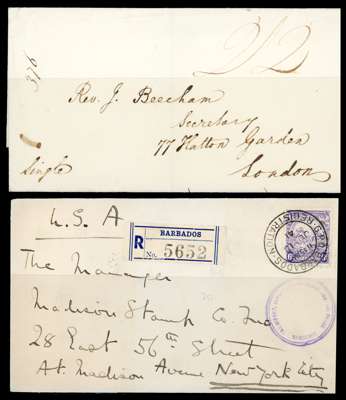 2/2
Rev. J. Beecham
Secretary
77 Hatton Garden
London
Single
U.S.A
BARBADOS
R No. 5652
The Manager
Madison Stamp Co. Inc
28 East 56th Street
At. Madison Avenue New York City